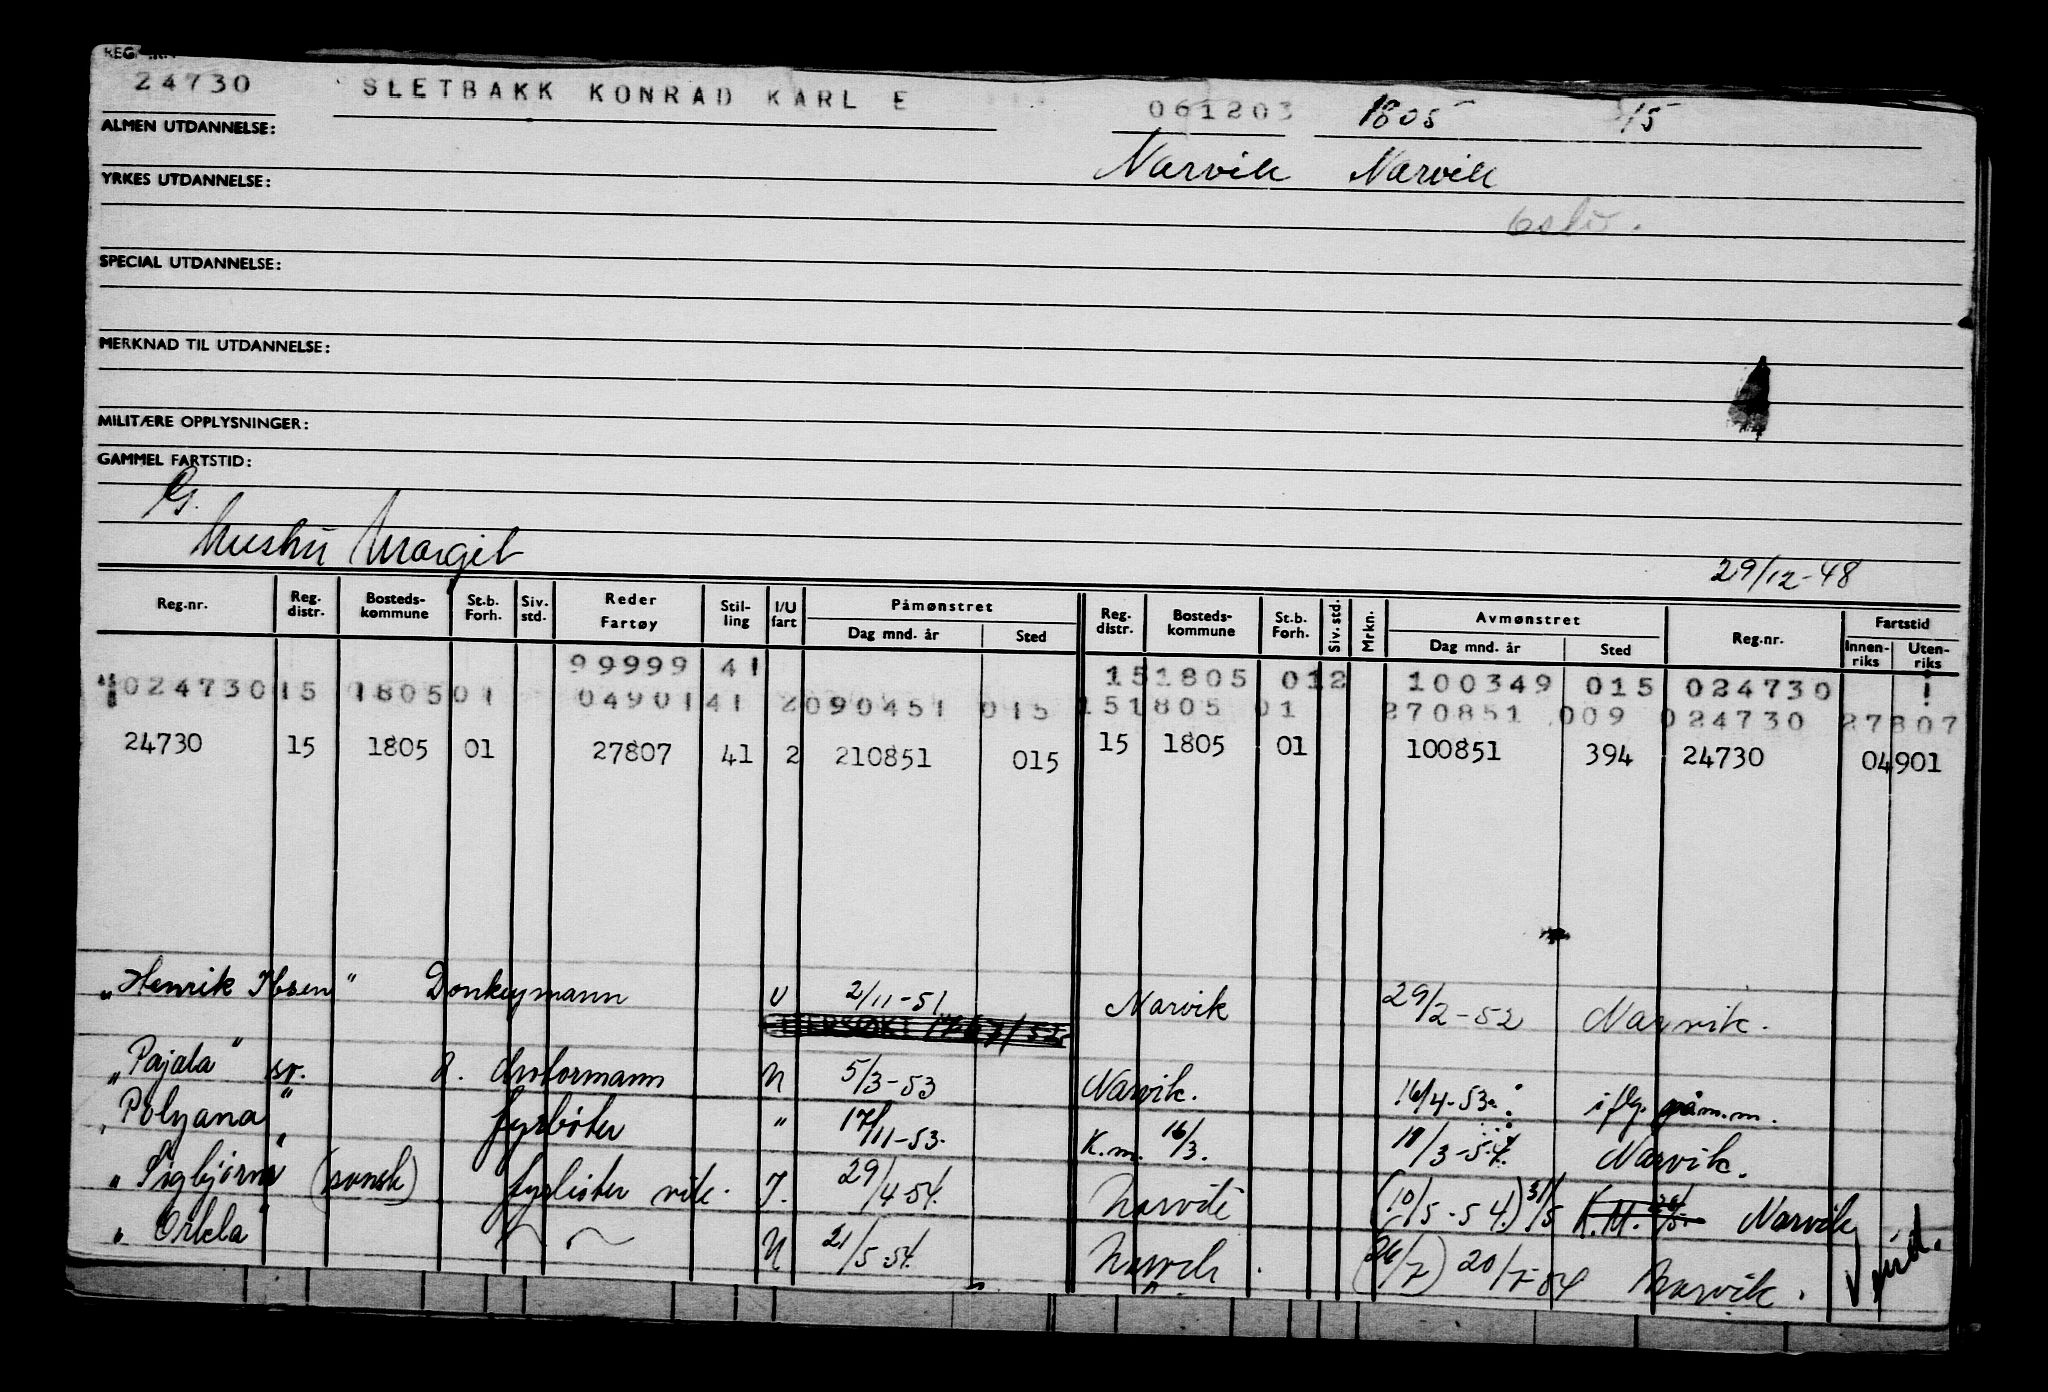 REG. NR.
24730 SLETBAKK KONRAD KARL E 061203 1805 15
ALMEN UTDANNELSE:
Narvik Narvik
YRKES UTDANNELSE:
Oslo.
SPECIAL UTDANNELSE:
MERKNAD TIL UTDANNELSE:
MILITÆRE OPPLYSNINGER:
GAMMEL FARTSTID:
G.
Hustru Margit 29/12-48
Reg.nr. Reg. distr. Bosteds-kommune St.b. Forh. Siv. std. Reder Fartøy Stil-ling I/U fart Påmønstret Dag mnd. år Sted Reg. distr. Bosteds-kommune St.b. Forh. Siv. std. Mrkn. Avmønstret Dag mnd. år Sted Reg.nr. Fartstid Innen-riks Uten-riks
99999 41 151805 012 100349 015 024730
024730 15 1805 01 04901 41 2 090451 015 151805 01 270851 009 024730 27807
24730 15 1805 01 27807 41 2 210851 015 15 1805 01 100851 394 24730 04901
"Henrik Ibsen" Donkeymann U 2/11-51 Narvik 29/2-52 Narvik.
"Pajala" sv. 2. Motormann U 5/3-53 Narvik. 16/4-53 i flg. påm.m.
"Polyana" fyrbøter " 17/11-53. K.m. 16/3. 18/3-54. Narvik.
"Sigbjørn" (svensk) fyrbøter vik. I. 29/4-54. Narvik (10/5-54.) 31/5 K.M. 26/5. Narvik
"Orkla" U 21/5-54. Narvik. (26/7) 20/7-54 Narvik.